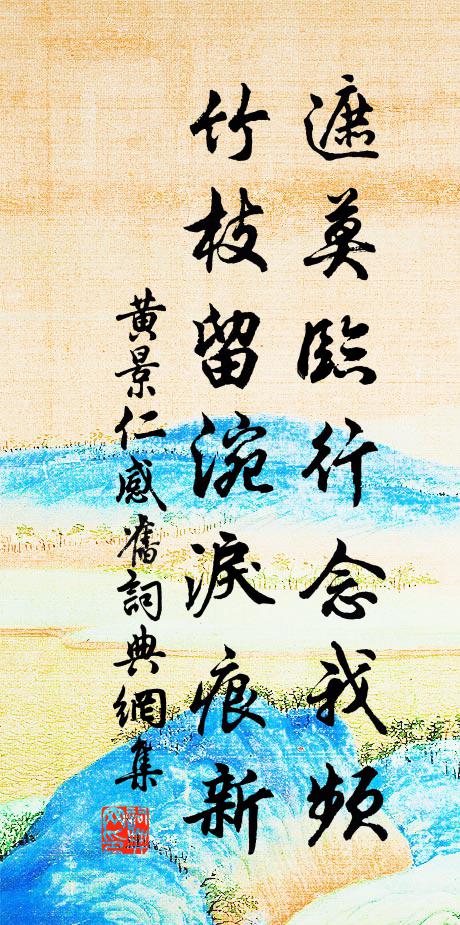 遮莫臨行念我頻
竹枝留涴淚痕新
黃景仁感舊詞典網集